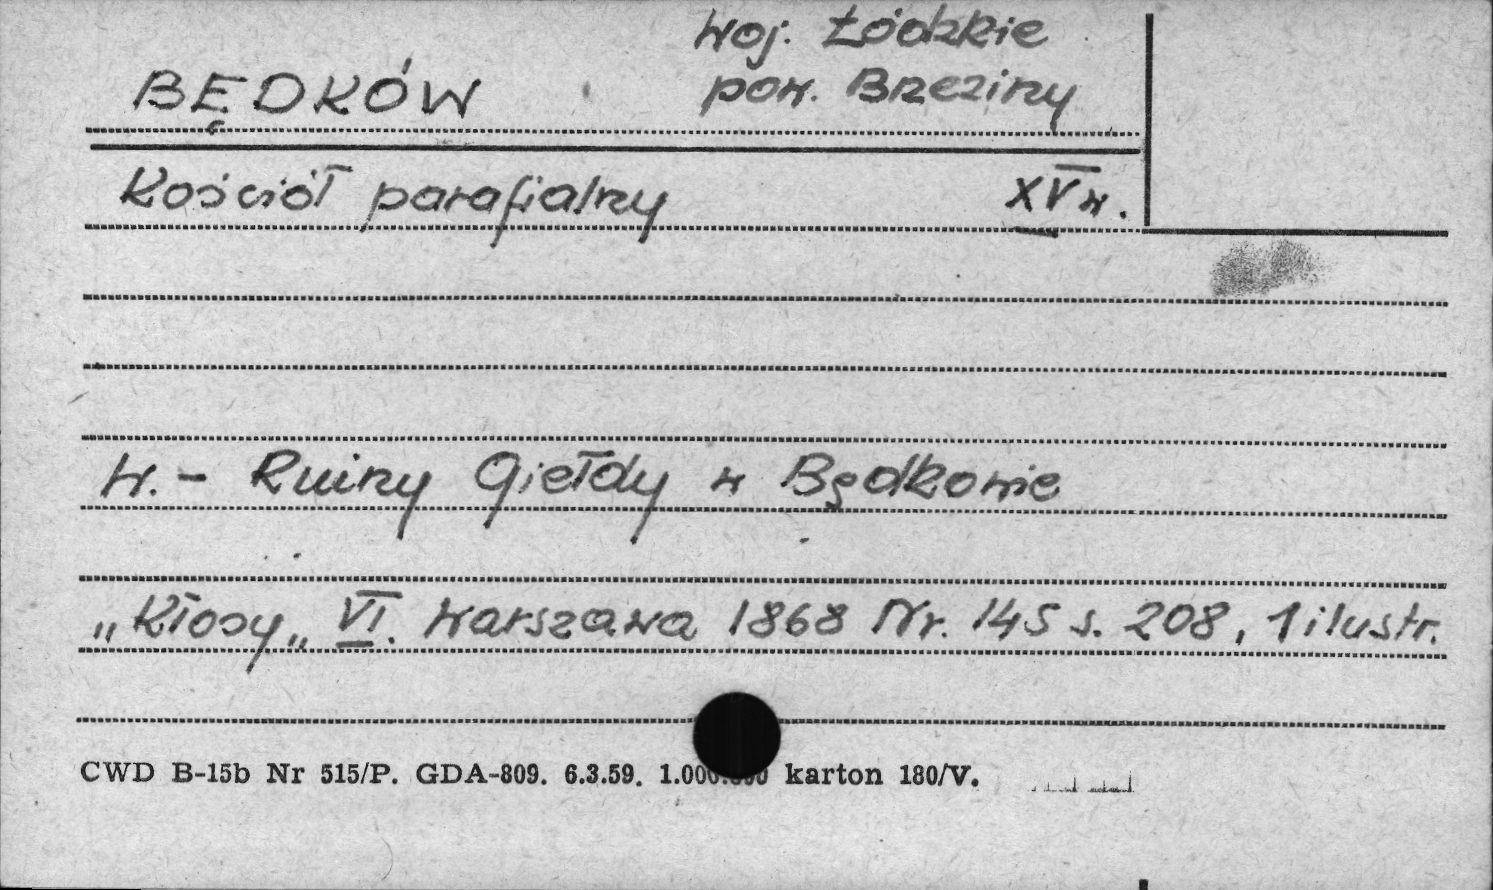 woj. Łódzkie
BĘDKÓW pow. Brzeziny
Kościół parafialny XV w.
W. - Ruiny Giełdy w Będkowie
„Kłosy„ VI. Warszawa 1868 Nr. 145 s. 208, 1 ilustr.
CWD B-15b Nr 515/P. GDA-809. 6.3.59. 1.000.000 karton 180/V.